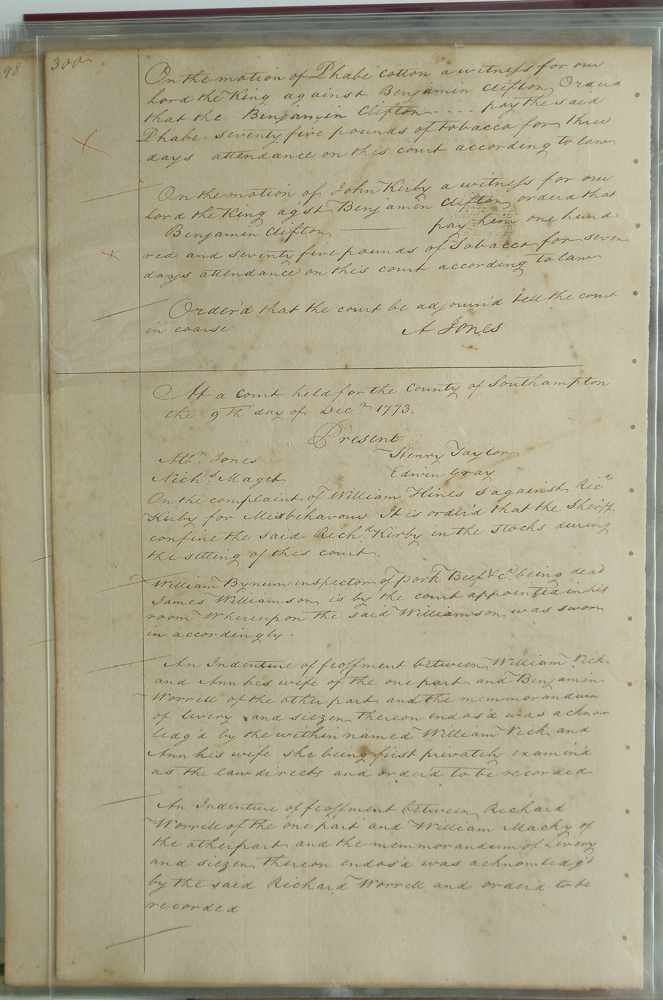 98
300
On the motion of Phabe Cotton a witness for our
Lord the King against Benjamin Clifton, Orderd
that the Benjamin Clifton pay the said
Phabe seventy five pounds of tobacco for three
days attendance on this court according to law
On the motion of John Kirby a witness for our
Lord the King agst Benjamin Clifton, orderd that
Benjamin Clifton pay him one hund
red and seventy five pounds of Tobacco for seven
days attendance on this court according to law
Order'd that the court be adjourn'd till the court
in coarse A Jones
At a Court held for the County of Southampton
the 9th day of Decr 1773.
Present
Albn Jones Henry Taylor
Nichs Maget Edwin Gray
On the complaint of William Hines against Ricd
Kirby for Misbehavour It is order'd that the Sheriff
confine the said Richd Kirby in the stocks during
the sitting of this court.
William Bynum inspector of Pork Beef &ca being dead
James Williamson is by the court appointed in his
room Whereupon the said Williamson was sworn
in accordingly.
An Indenture of feoffment between William Vick
and Ann his wife of the one part and Benjamin
Worrell of the other part and the memmorandum
of Livery and siezen thereon endos'd was acknow
ledg'd by the within named William Vick and
Ann his wife she being first privately examin'd
as the law directs and order'd to be recorded
An Indenture of feoffment between Richard
Worrell of the one part and William Macky of
the other part and the memmorandum of Livery
and siezen thereon endos'd was acknowledg'd
by the said Richard Worrell and order'd to be
recorded